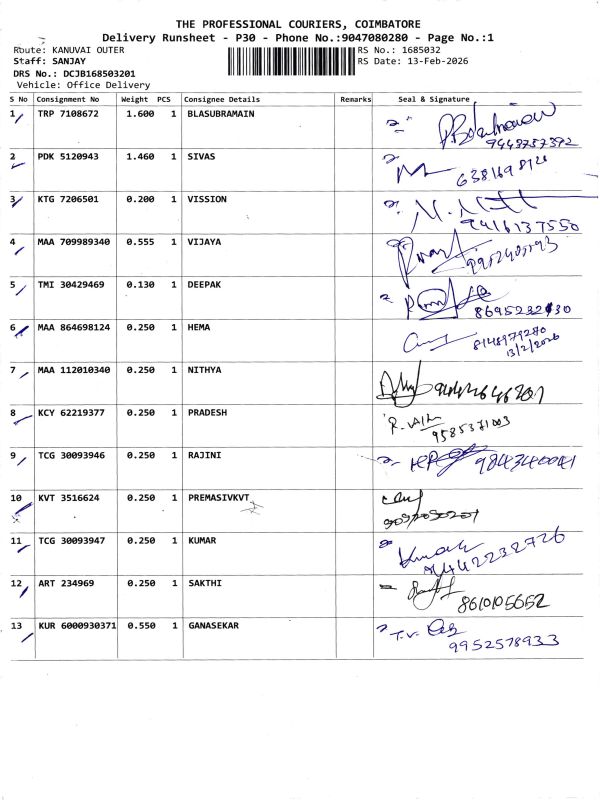 THE PROFESSIONAL COURIERS, COIMBATORE
Delivery Runsheet - P30 - Phone No.:9047080280 - Page No.:1
Route: KANUVAI OUTER RS No.: 1685032
Staff: SANJAY RS Date: 13-Feb-2026
DRS No.: DCJB168503201
Vehicle: Office Delivery
S No Consignment No Weight PCS Consignee Details Remarks Seal & Signature
1 TRP 7108672 1.600 1 BLASUBRAMAIN
9448757392
2 PDK 5120943 1.460 1 SIVAS
3 KTG 7206501 0.200 1 VISSION
9416137550
4 MAA 709989340 0.555 1 VIJAYA
5 TMI 30429469 0.130 1 DEEPAK
6 MAA 864698124 0.250 1 HEMA
8148979280
13/2/2026
7 MAA 112010340 0.250 1 NITHYA
8 KCY 62219377 0.250 1 PRADESH
9585371003
9 TCG 30093946 0.250 1 RAJINI
9843400041
10 KVT 3516624 0.250 1 PREMASIVKVT
11 TCG 30093947 0.250 1 KUMAR
9442232726
12 ART 234969 0.250 1 SAKTHI
8610105652
13 KUR 6000930371 0.550 1 GANASEKAR
T.V.
9952578933